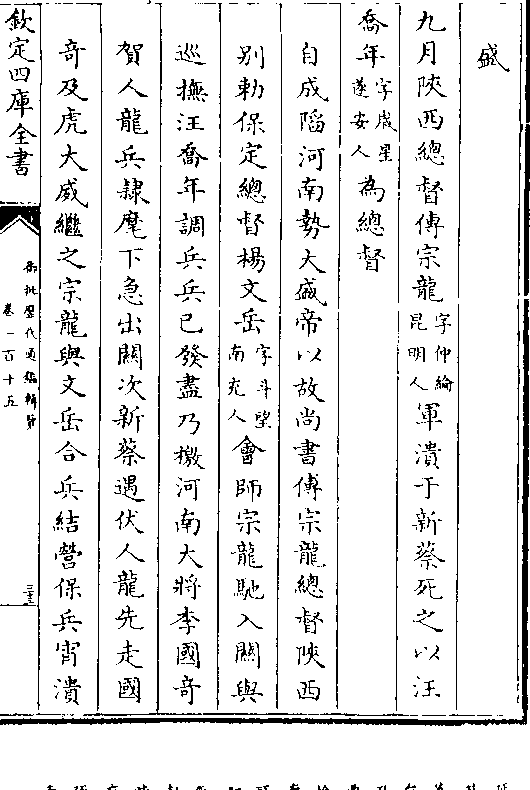 盛
九月陝西總督傅宗龍字仲綸昆明人軍潰于新蔡死之以汪
喬年字歲星遂安人為總督
自成陷河南勢大盛帝以故尚書傅宗龍總督陝西
別勅保定總督楊文岳字斗望南充人會師宗龍馳入關與
巡撫汪喬年調兵兵已發盡乃檄河南大將李國奇
賀人龍兵隸麾下急出關次新蔡遇伏人龍先走國
奇及虎大威繼之宗龍與文岳合兵結營保兵宵潰
欽定四庫全書
御批歷代通鑑輯覽
卷一百十五
三十三